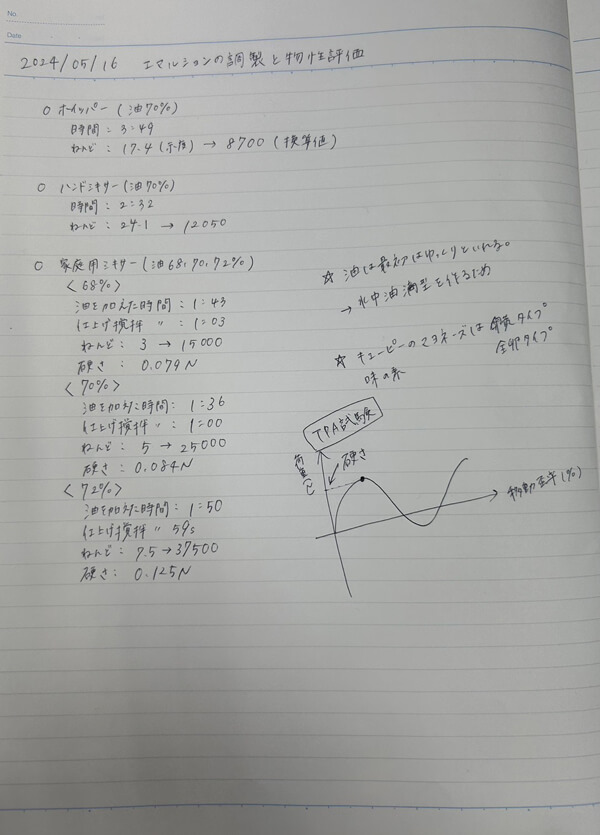 No.
Date
2024/05/16 エマルションの調製と物性評価
○ ホイッパー (油70%)
時間 : 3:49
ねんど : 17.4 (示度) → 8700 (換算値)
○ ハンドミキサー (油70%)
時間 : 2:32
ねんど : 24.1 → 12050
○ 家庭用ミキサー (油68, 70, 72%)
<68%>
油を加えた時間 : 1:43
仕上げ撹拌 〃 : 1:03
ねんど : 3 → 15000
硬さ : 0.079N
<70%>
油を加えた時間 : 1:36
仕上げ撹拌 〃 : 1:00
ねんど : 5 → 25000
硬さ : 0.084N
<72%>
油を加えた時間 : 1:50
仕上げ撹拌 〃 59s
ねんど : 7.5 → 37500
硬さ : 0.125N
☆ 油は最初はゆっくりといれる。
→ 水中油滴型を作るため
☆ キューピーのマヨネーズは 卵黄タイプ
味の素 全卵タイプ
TPA試験
硬さ
移動歪率(%)